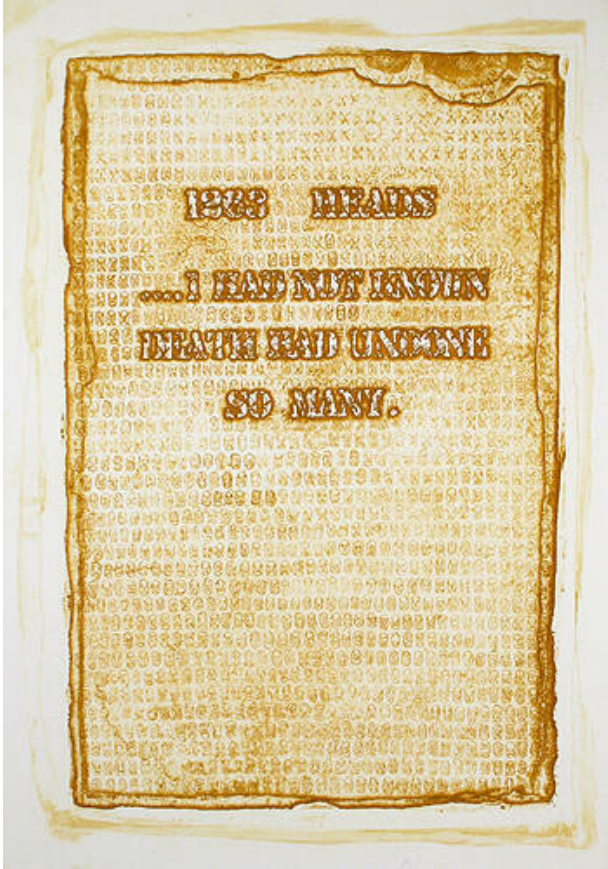 1263 HEADS
....I HAD NOT KNOWN
DEATH HAD UNDONE
SO MANY.